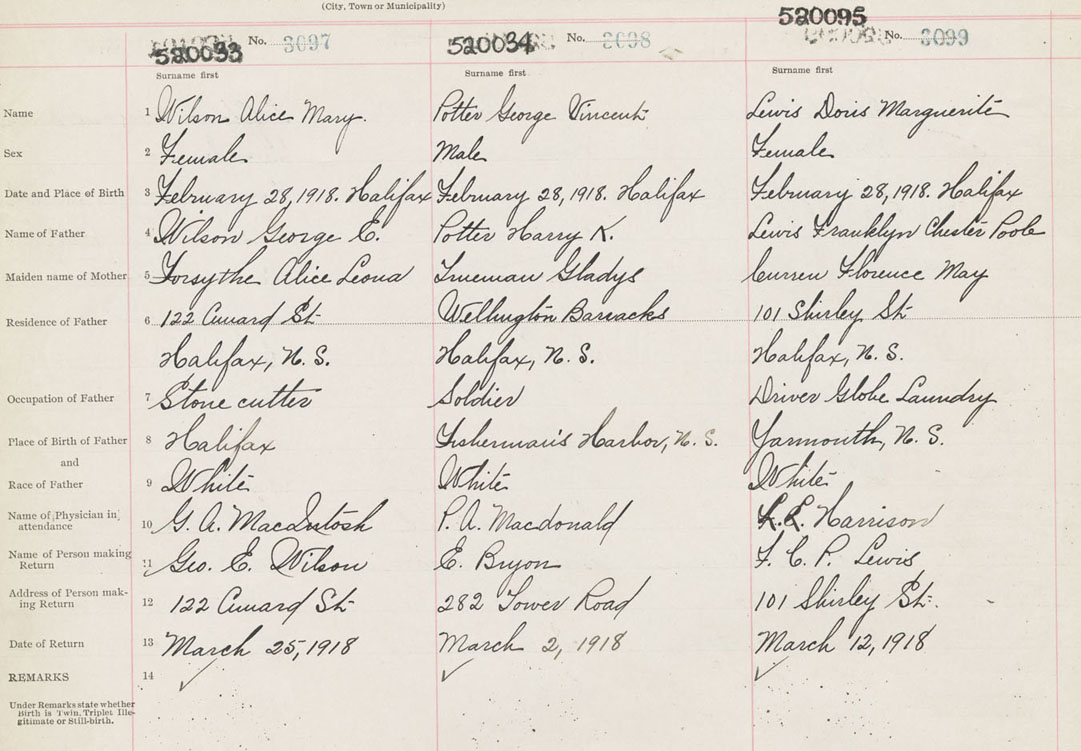 (City, Town or Municipality)
520033 No. 3097 520034 No. 3098 520095 No. 3099
Surname first Surname first Surname first
Name 1 Wilson Alice Mary. Potter George Vincent Lewis Doris Marguerite
Sex 2 Female Male Female
Date and Place of Birth 3 February 28, 1918. Halifax February 28, 1918. Halifax February 28, 1918. Halifax
Name of Father 4 Wilson George E. Potter Harry K. Lewis Franklyn Chester Poole
Maiden name of Mother 5 Forsythe Alice Leona Trueman Gladys Curren Florence May
Residence of Father 6 122 Cunard St Wellington Barracks 101 Shirley St
Halifax, N. S. Halifax, N. S. Halifax, N. S.
Occupation of Father 7 Stone cutter Soldier Driver Globe Laundry
Place of Birth of Father 8 Halifax Fisherman's Harbor, N. S. Yarmouth, N. S.
and
Race of Father 9 White White White
Name of Physician in
attendance 10 G. A. MacIntosh P. A. Macdonald Harrison
Name of Person making
Return 11 Geo. E. Wilson E. Bryon F. C. P. Lewis
Address of Person mak-
ing Return 12 122 Cunard St 282 Tower Road 101 Shirley St.
Date of Return 13 March 25, 1918 March 2, 1918 March 12, 1918
REMARKS 14
Under Remarks state whether
Birth is Twin, Triplet Ille-
gitimate or Still-birth.